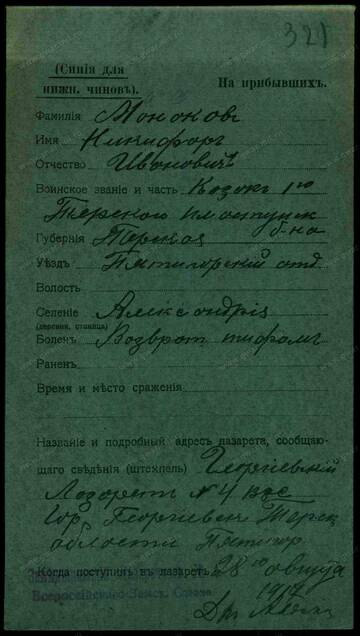 321
(Синія для
нижн. чиновъ).
На прибывшихъ.
Фамилія Моноковъ
Имя Никифоръ
Отчество Ивановичъ
Воинское званіе и часть Козакъ 1го
Терскаго пластунск
б-на
Губернія Терская
Уѣздъ Пятигорскій отд
Волость
Селеніе Александрія
(деревня, станица)
Боленъ Возврат тифомъ
Раненъ
Время и мѣсто сраженія
Названіе и подробный адресъ лазарета, сообщаю-
щаго свѣдѣнія (штемпель) Георгіевскій
Лазаретъ № 4 ВЗС
гор. Георгіевск Терск
области Пятигор.
Когда поступилъ въ лазаретъ 28го августа
1917
Всероссійскаго Земск. Союза